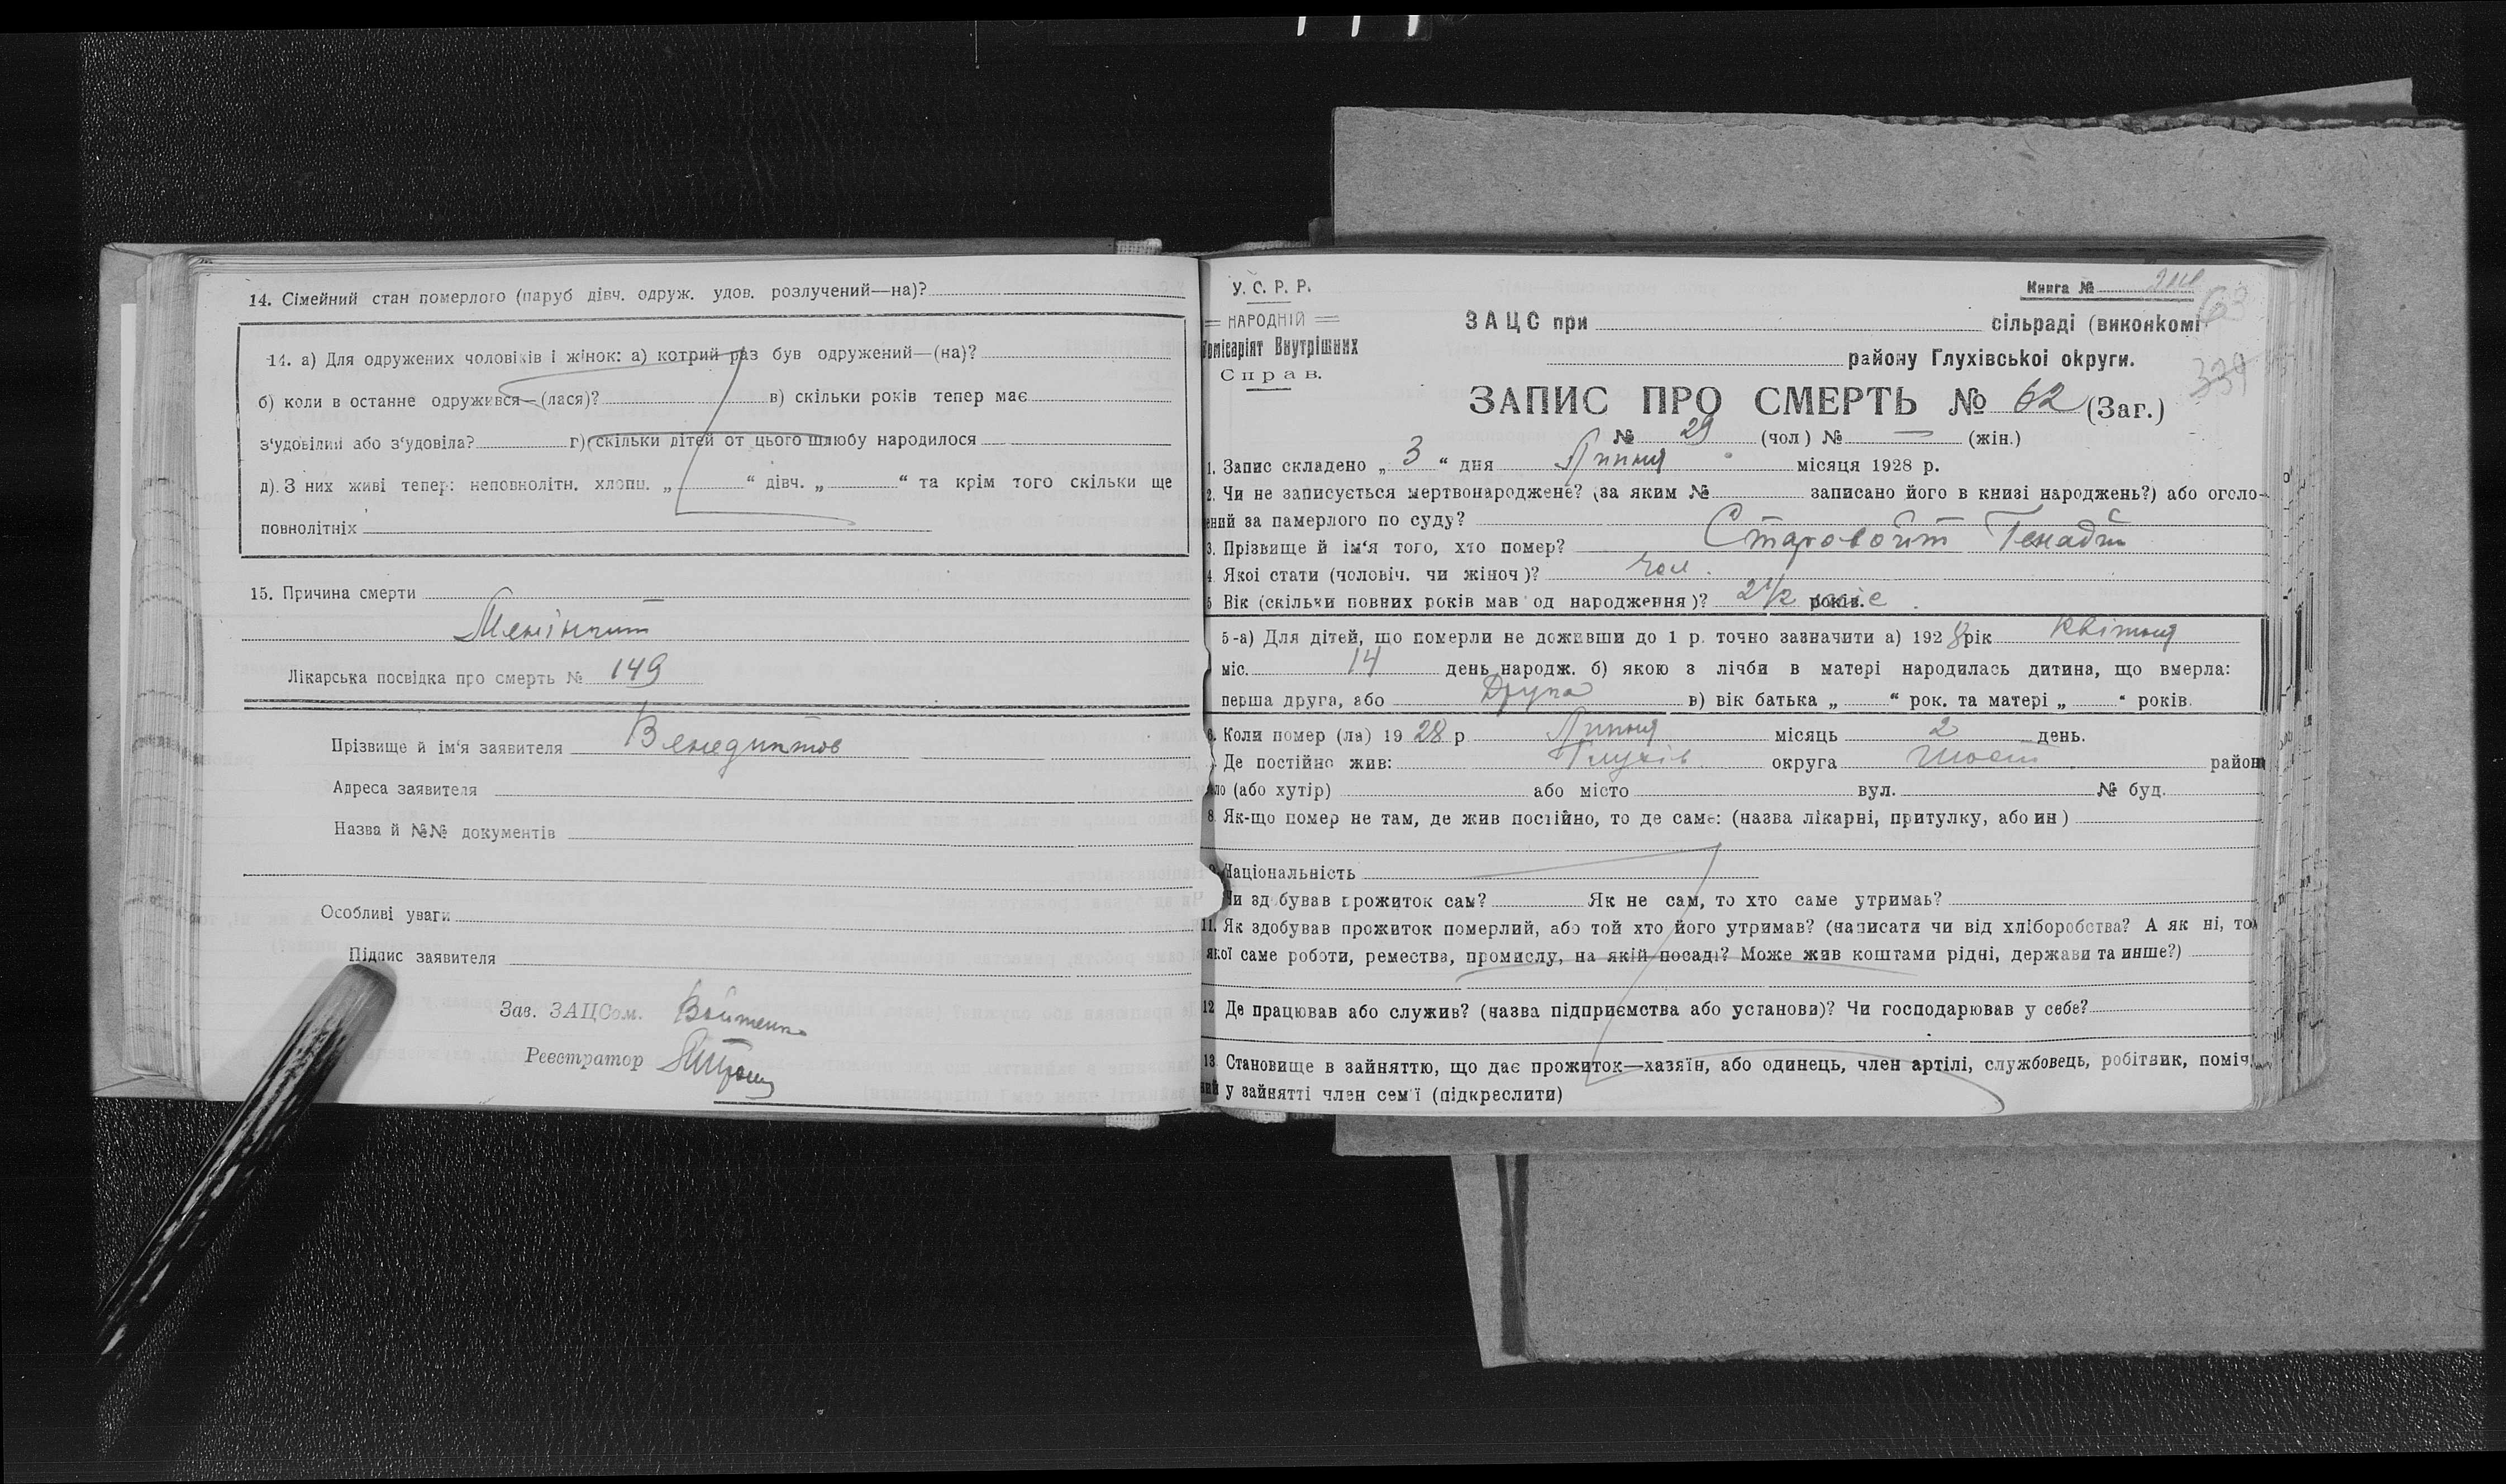 14. Сімейний стан померлого (паруб дівч. одруж. удов. розлучений—на)?
14. а) Для одружених чоловіків і жінок: а) котрий раз був одружений—(на)?
б) коли в останне одружився—(лася)? в) скільки років тепер має
з'удовілий або з'удовіла? г) скільки дітей от цього шлюбу народилося
д). З них живі тепер: неповнолітн. хлопц. „ “ дівч. „ “ та крім того скільки ще
повнолітніх
15. Причина смерти
Менінгит
Лікарська посвідка про смерть № 149
Прізвище й ім'я заявителя Венедиктов
Адреса заявителя
Назва й №№ документів
Особливі уваги
Підпис заявителя
Зав. ЗАЦСом. Войтенко
Реєстратор
У. С. Р. Р.
НАРОДНІЙ
Комісаріят Внутрішних
Справ.
Книга №
63
ЗАЦС при сільраді (виконкомі
району Глухівської округи.
339
ЗАПИС ПРО СМЕРТЬ № 62 (Заг.)
№ 29 (чол) № — (жін.)
1. Запис складено „ 3 “ дня Липня місяця 1928 р.
2. Чи не записується мертвонароджене? (за яким № записано його в книзі народжень?) або оголо-
ений за памерлого по суду?
3. Прізвище й ім'я того, хто помер? Старовойт Генадій
4. Якої стати (чоловіч. чи жіноч)? чол.
5 Вік (скільки повних років мав од народження)? 2 1/2 років. міс.
5-а) Для дітей, що померли не доживши до 1 р. точно зазначити а) 1928 рік Квітня
міс. 14 день народж. б) якою з лічби в матері народилась дитина, що вмерла:
перша друга, або Друга в) вік батька „ “ рок. та матері „ “ років.
6. Коли помер (ла) 1928 р Липня місяць 2 день.
Де постійно жив: Глухів округа Шост район
ло (або хутір) або місто вул. № буд.
8. Як-що помер не там, де жив постійно, то де саме: (назва лікарні, притулку, або ин)
9. Національність
Чи здобував прожиток сам? Як не сам, то хто саме утримав?
11. Як здобував прожиток померлий, або той хто його утримав? (написати чи від хліборобства? А як ні, то
якої саме роботи, ремества, промислу, на якій посаді? Може жив коштами рідні, держави та инше?)
12 Де працював або служив? (назва підприємства або установи)? Чи господарював у себе?
13. Становище в зайняттю, що дає прожиток—хазяїн, або одинець, член артілі, службовець, робітник, поміч.
ний у зайнятті член сем'ї (підкреслити)